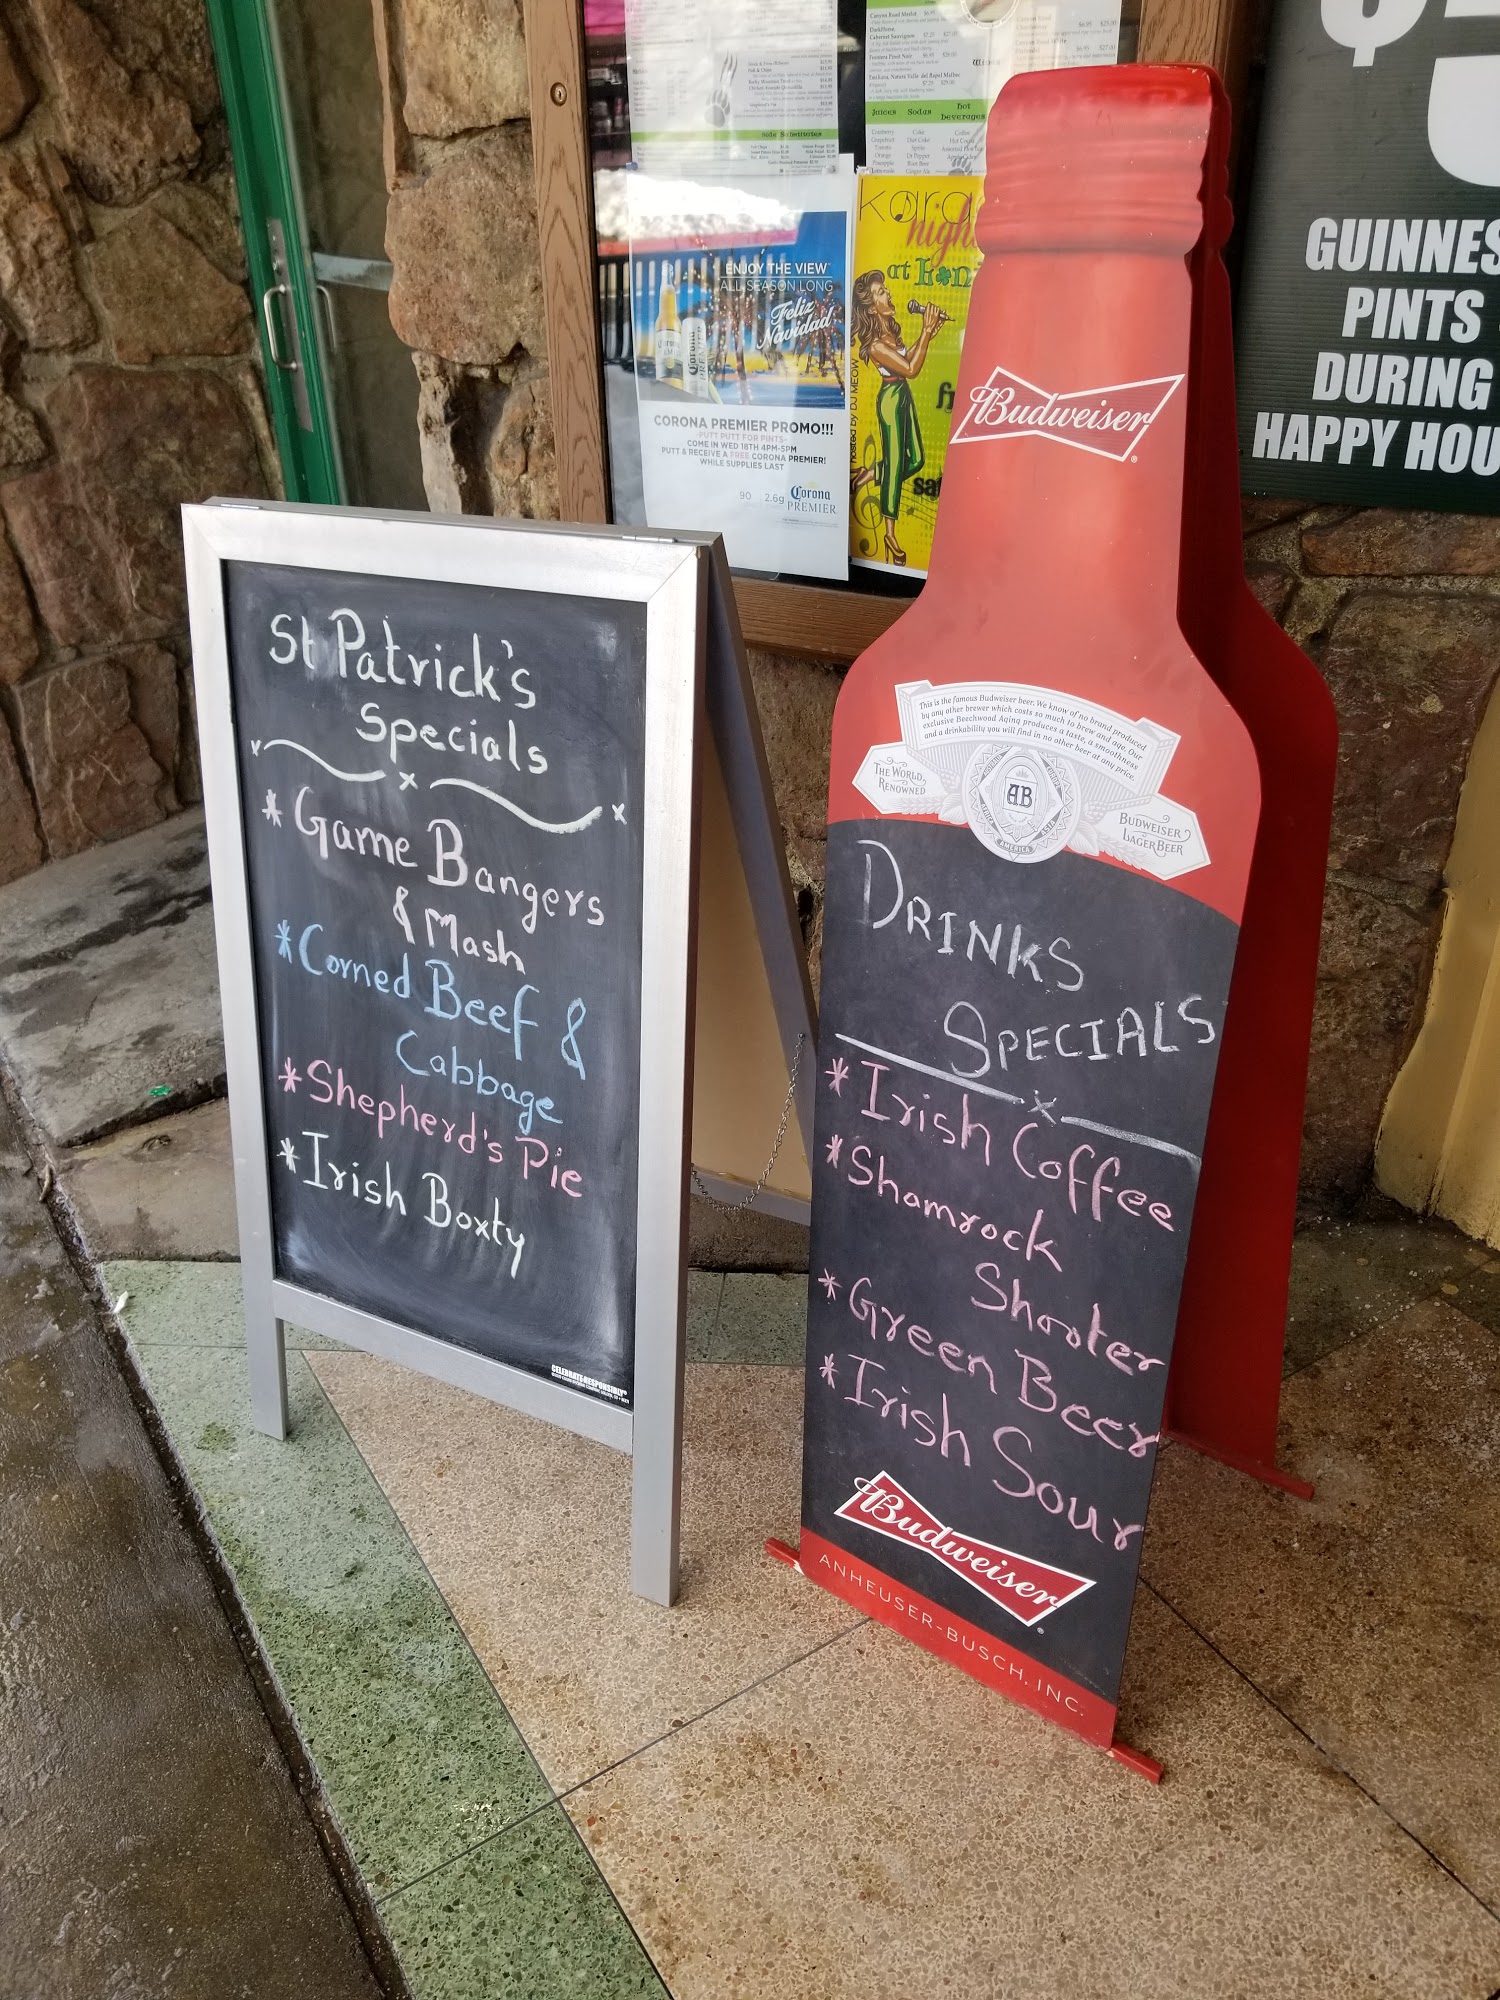 St Patrick's
Specials
* Game Bangers
& Mash
* Corned Beef &
Cabbage
* Shepherd's Pie
* Irish Boxty
CELEBRATE RESPONSIBLY
Budweiser
This is the famous Budweiser beer. We know of no brand produced
by any other brewer which costs so much to brew and age. Our
exclusive Beechwood Aging produces a taste, a smoothness
and a drinkability you will find in no other beer at any price.
THE WORLD
RENOWNED
AB
AMERICA
ASIA
BUDWEISER
LAGER BEER
DRINKS
SPECIALS
* Irish Coffee
* Shamrock
Shooter
* Green Beer
* Irish Sour
Budweiser
ANHEUSER-BUSCH, INC.
Side Substitutes
Juices Sodas hot
beverages
Cranberry Coke Coffee
Grapefruit Diet Coke
Tomato Sprite
Orange Dr Pepper
Pineapple Root Beer
Lemonade Ginger Ale
ENJOY THE VIEW
ALL SEASON LONG
Feliz
Navidad
CORONA PREMIER PROMO!!!
PUTT PUTT FOR PINTS-
COME IN WED 18TH 4PM-5PM
PUTT & RECEIVE A FREE CORONA PREMIER!
WHILE SUPPLIES LAST
90 2.6g Corona
PREMIER
kara
night
at
hosted by DJ MEOW
$
GUINNES
PINTS
DURING
HAPPY HOU